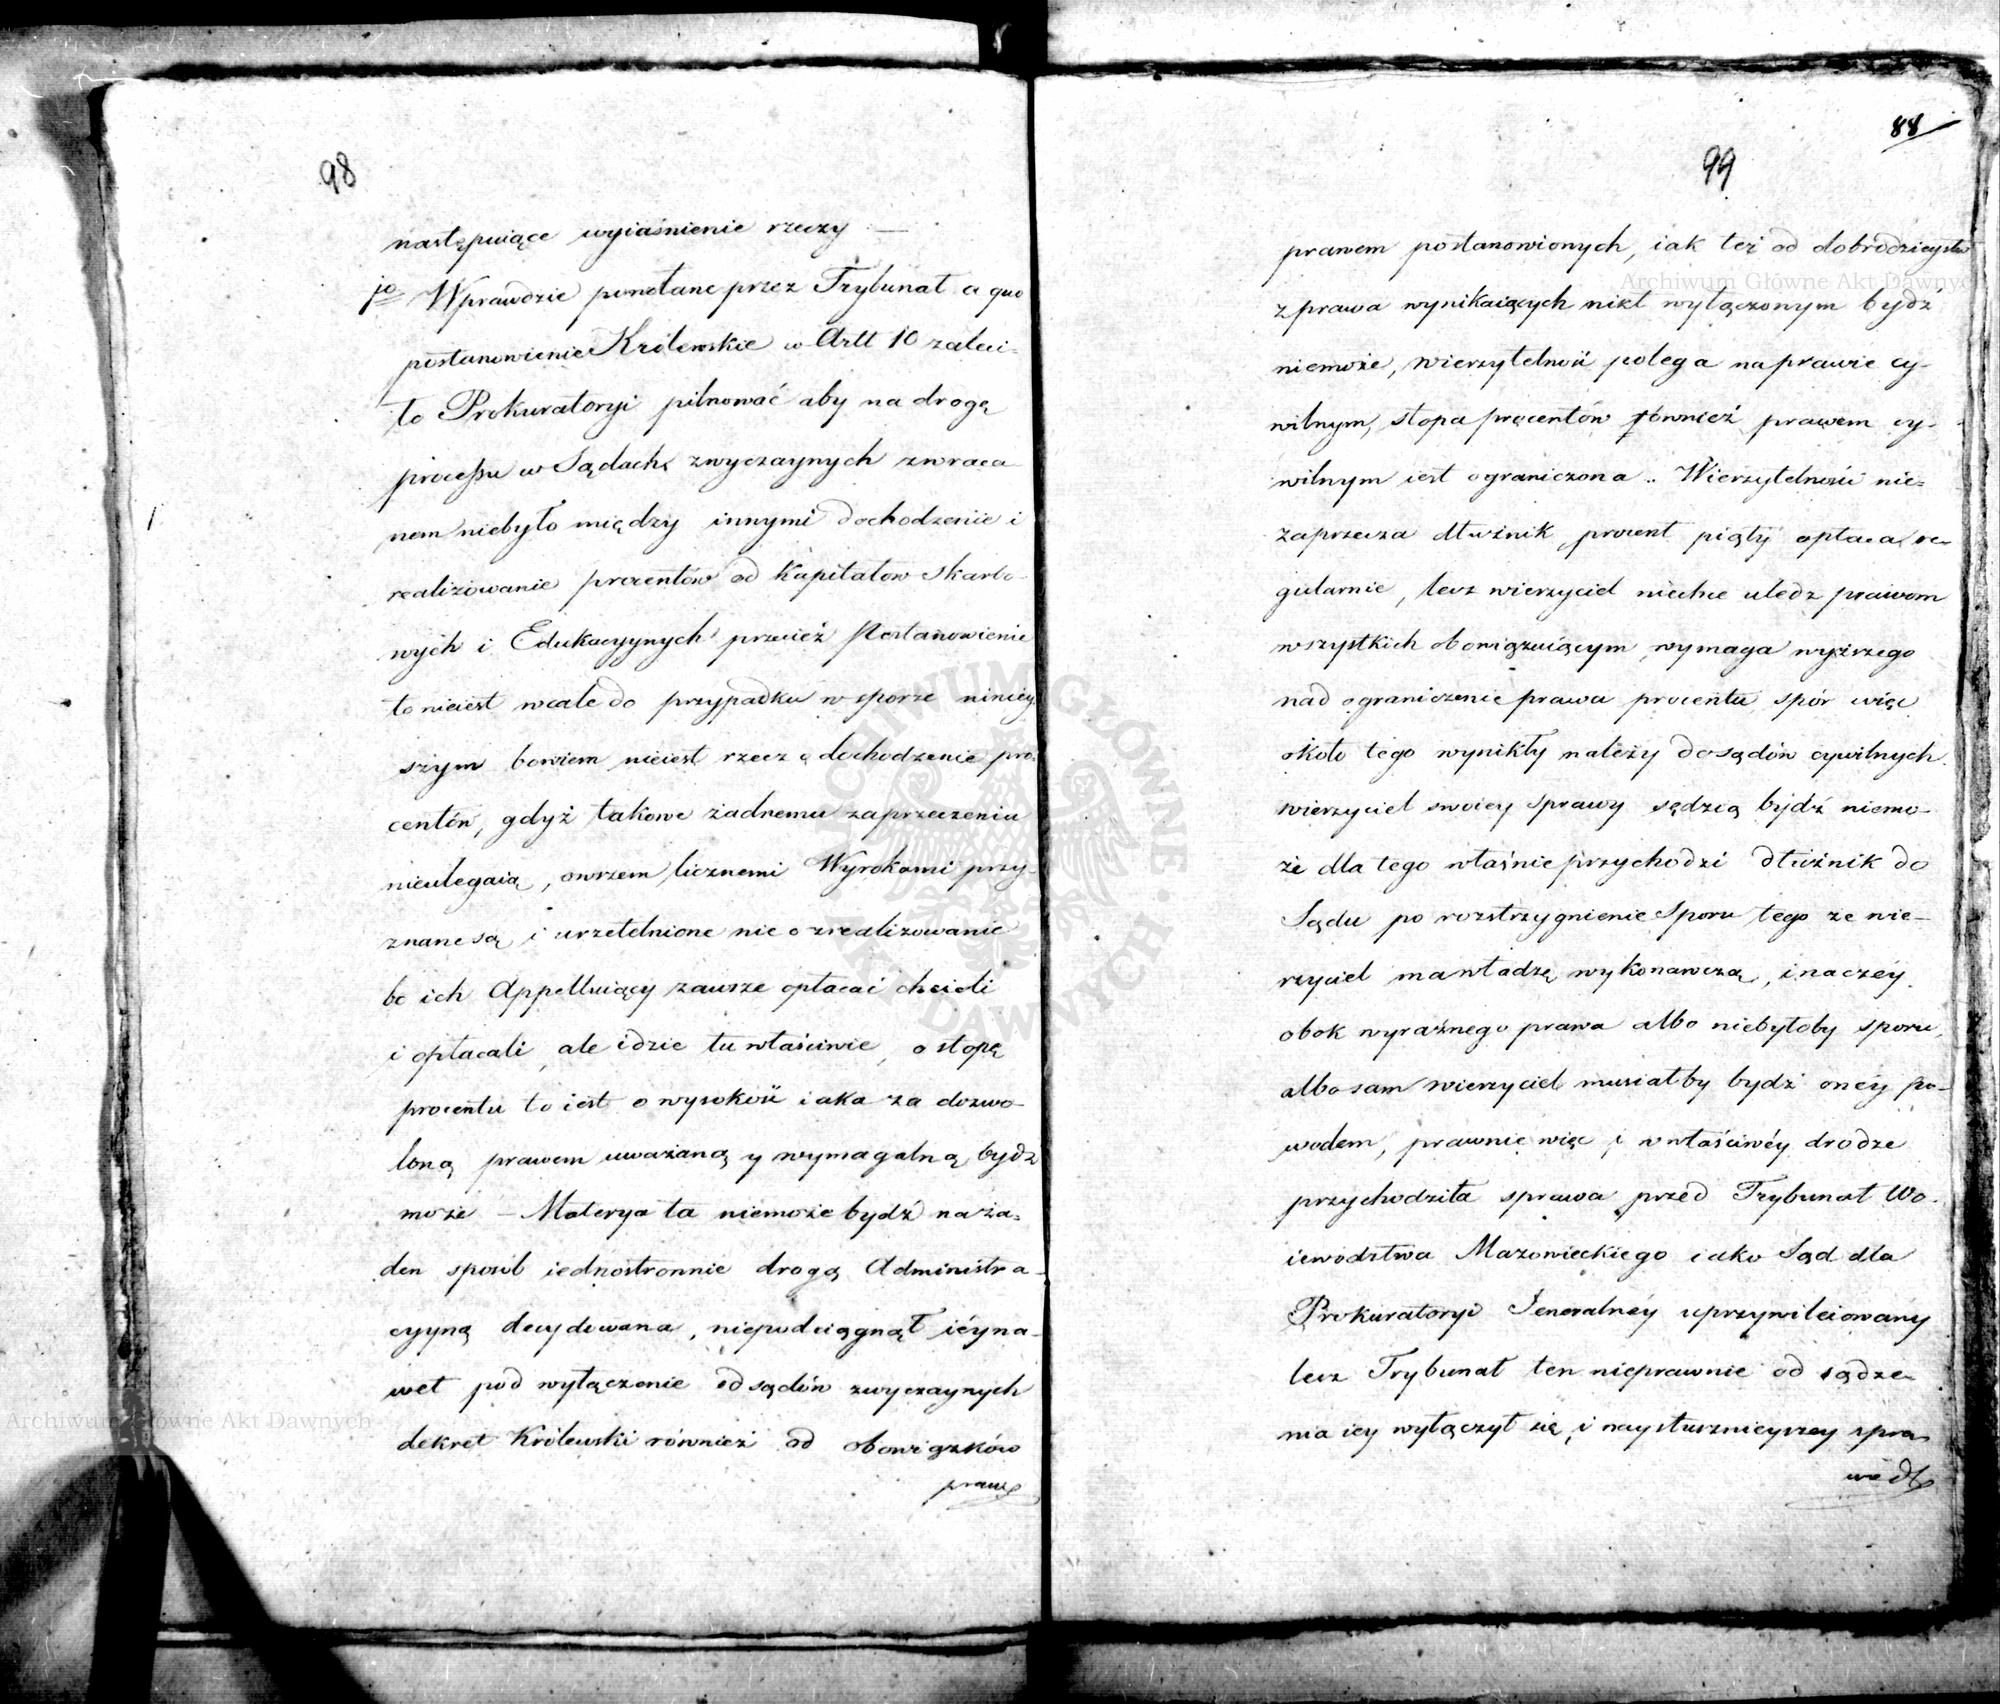 98
następuiące wyiaśnienie rzeczy —
1o Wprawdzie powołane przez Trybunał a quo
postanowienie Królewskie w Artt 10 zaleci-
ło Prokuratoryi pilnować aby na drogę
processu w Sądach zwyczaynych zwraca-
nem niebyło między innymi dochodzenie i
realizowanie procentów od Kapitałow Skarbo-
wych i Edukacyynych przecież Postanowienie
to nieiest wcale do przypadku w sporze niniey-
szym bowiem nieiest rzeczą dochodzenie pro-
centów, gdyż takowe żadnemu zaprzeczeniu
nieulegaią, owszem licznemi Wyrokami przy-
znane są i urzetelnione nie o zrealizowanie
bo ich Appelluiący zawsze opłacać chcieli
i opłacali, ale idzie tu właściwie, o stopę
procentu to iest o wysokość iaka za dozwo-
loną prawem uważaną y wymagalną bydz
może — Materya ta niemoże bydź na ża-
den sposób iednostronnie drogą Administra-
cyyną decydowana, niepodciągnął iéy na-
wet pod wyłączenie od sądów zwyczaynych
dekret Królewski również od obowiązków
praw
88
99
prawem postanowionych, iak też od dobrodzieystw
z prawa wynikaiących nikt wyłączonym bydź
niemoże, wierzytelność polega na prawie cy-
wilnym, stopa procentów również prawem cy-
wilnym iest ograniczona .. Wierzytelności nie-
zaprzecza dłużnik, procent piąty opłaca re-
gularnie, lecz wierzyciel niechce uledz prawom
wszystkich obowiązuiącym, wymaga wyższego
nad ograniczenie prawa procentu, spór więc
około tego wynikły należy do sądów cywilnych.
wierzyciel swoiey sprawy sędzią bydź niemo-
że dla tego właśnie przychodzi dłużnik do
Sądu po rozstrzygnienie Sporu tego ze wie-
rzyciel ma władzę wykonawczą, inaczéy
obok wyraźnego prawa albo niebyłoby sporu,
albo sam wierzyciel musiałby bydź onéy po-
wodem, prawnie więc i w właściwéy drodze
przychodziła sprawa przed Trybunał Wo-
iewodztwa Mazowieckiego iako Sąd dla
Prokuratoryi Jeneralnéy uprzywileiowany
lecz Trybunał ten nieprawnie od sądze-
nia iey wyłączył się, i naysłusznieyszey spra-
wiedl